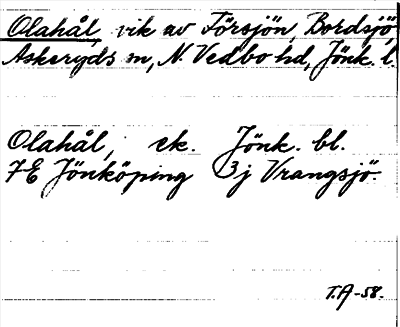 Olahål, vik av Försjön, Bordsjö,
Askeryds sn, N. Vedbo hd, Jönk. l.
Olahål, ek. Jönk. bl.
7E Jönköping 3j Vrangsjö.
T.A-58.